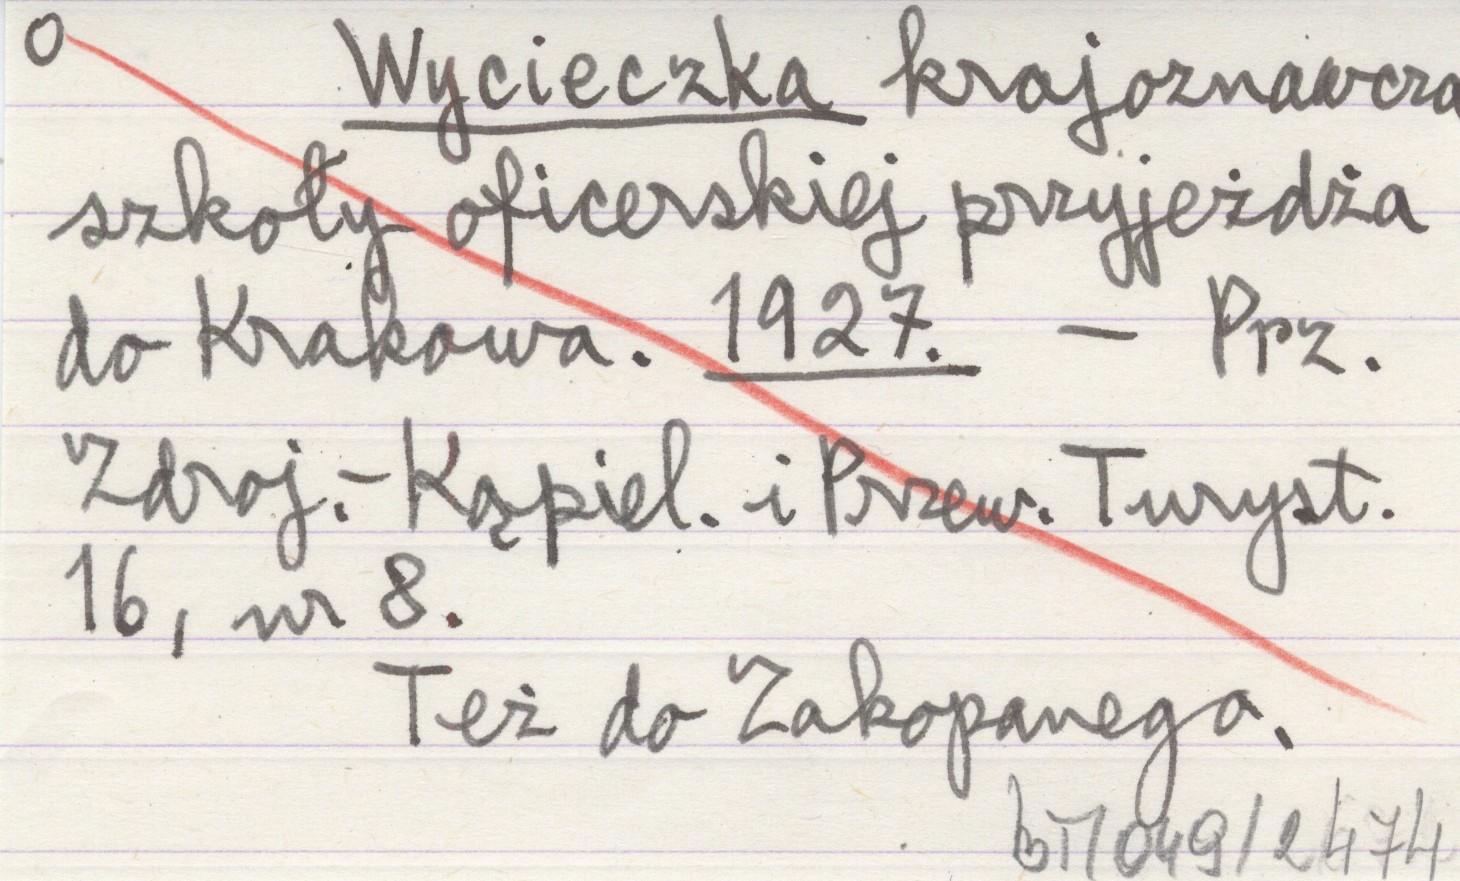 O Wycieczka krajoznawcza
szkoły oficerskiej przyjeżdża
do Krakowa. 1927. – Ppz.
Zdroj.-Kąpiel. i Przew. Turyst.
16, nr 8.
Też do Zakopanego.
049/2474